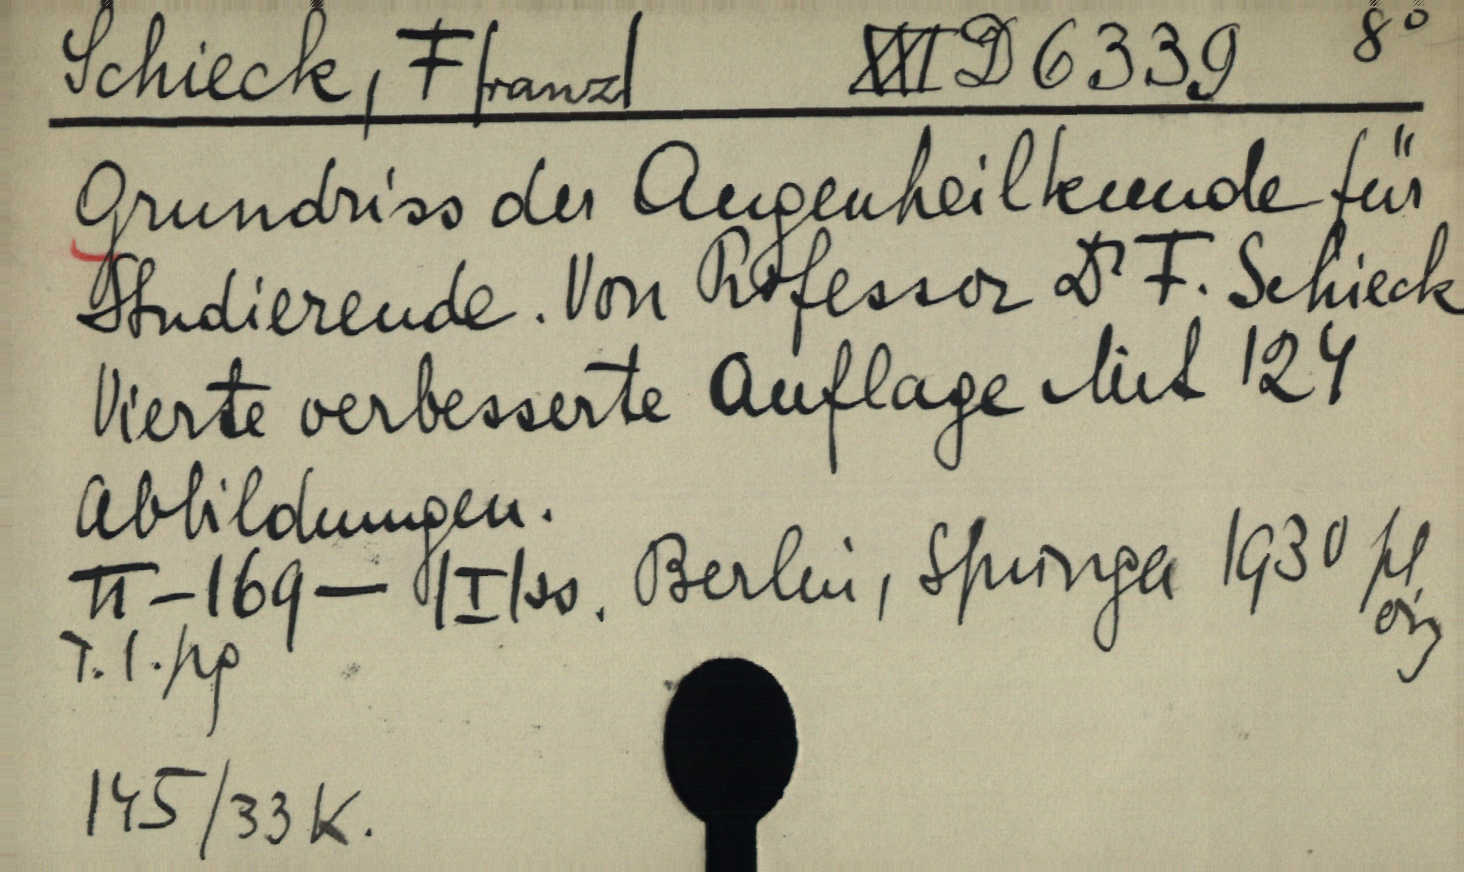 Schieck, F|ranz| XXII D 6339 8°
Grundriss der Augenheilkunde für
Studierende. Von Professor Dr F. Schieck
Vierte verbesserte Auflage Mit 124
Abbildungen.
II-169-|I|ss. Berlin, Springer 1930 pl
145/33 K.